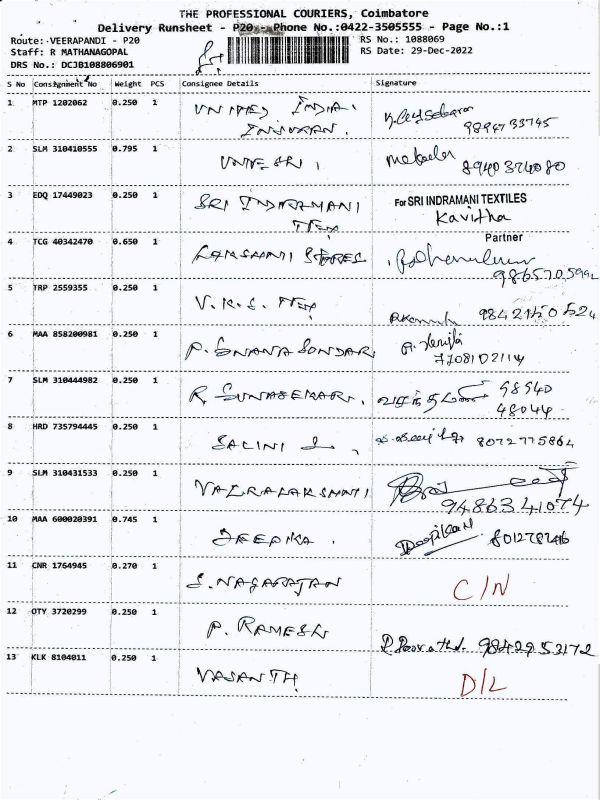 THE PROFESSIONAL COURIERS, Coimbatore
Delivery Runsheet - P20 - Phone No.:0422-3505555 - Page No.:1
Route: VEERAPANDI - P20 RS No.: 1088069
Staff: R MATHANAGOPAL RS Date: 29-Dec-2022
DRS No.: DCJB108806901
S No Consignment No Weight PCS Consignee Details Signature
1 MTP 1202062 0.250 1 UNITED INDIA.
INSURAN. 9894733745
2 SLM 310410555 0.795 1 8940374080
3 EDQ 17449023 0.250 1 SRI INDRAMANI For SRI INDRAMANI TEXTILES
TEX Kavitha
Partner
4 TCG 40342470 0.650 1 LAKSHMI STORES
5 TRP 2559355 0.250 1 V.K.S. TEX 9842150524
6 MAA 858200981 0.250 1 P. GNANA SONDARI
7708102114
7 SLM 310444982 0.250 1 R. GUNASEKARI. வசந்தமணி 98940
48044
8 HRD 735794445 0.250 1 SALINI S, 8072775864
9 SLM 310431533 0.250 1 VAIRALAKSHMI
9486341074
10 MAA 600020391 0.745 1 DEEPIKA. Deepika
11 CNR 1764945 0.270 1 S. NAGARAJAN C/N
12 OTY 3720299 0.250 1 P. RAMESH
9842953172
13 KLK 8104011 0.250 1 VASANTH D/L